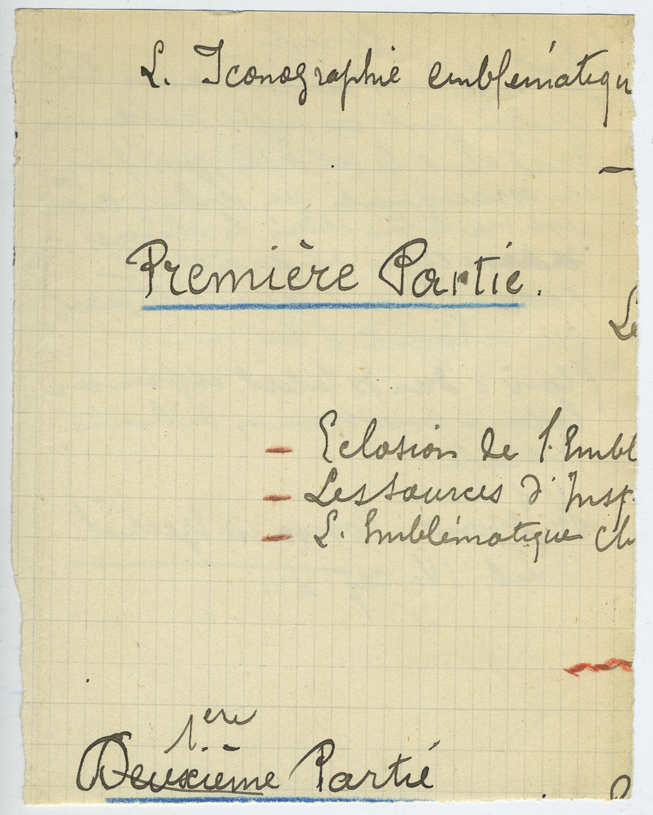 L. Iconographie emblématiqu
Première Partie.
Le
Eclosion de l. Embl
Les sources d' Insp
L. Emblématique Ch
1ère
Deuxième Partie